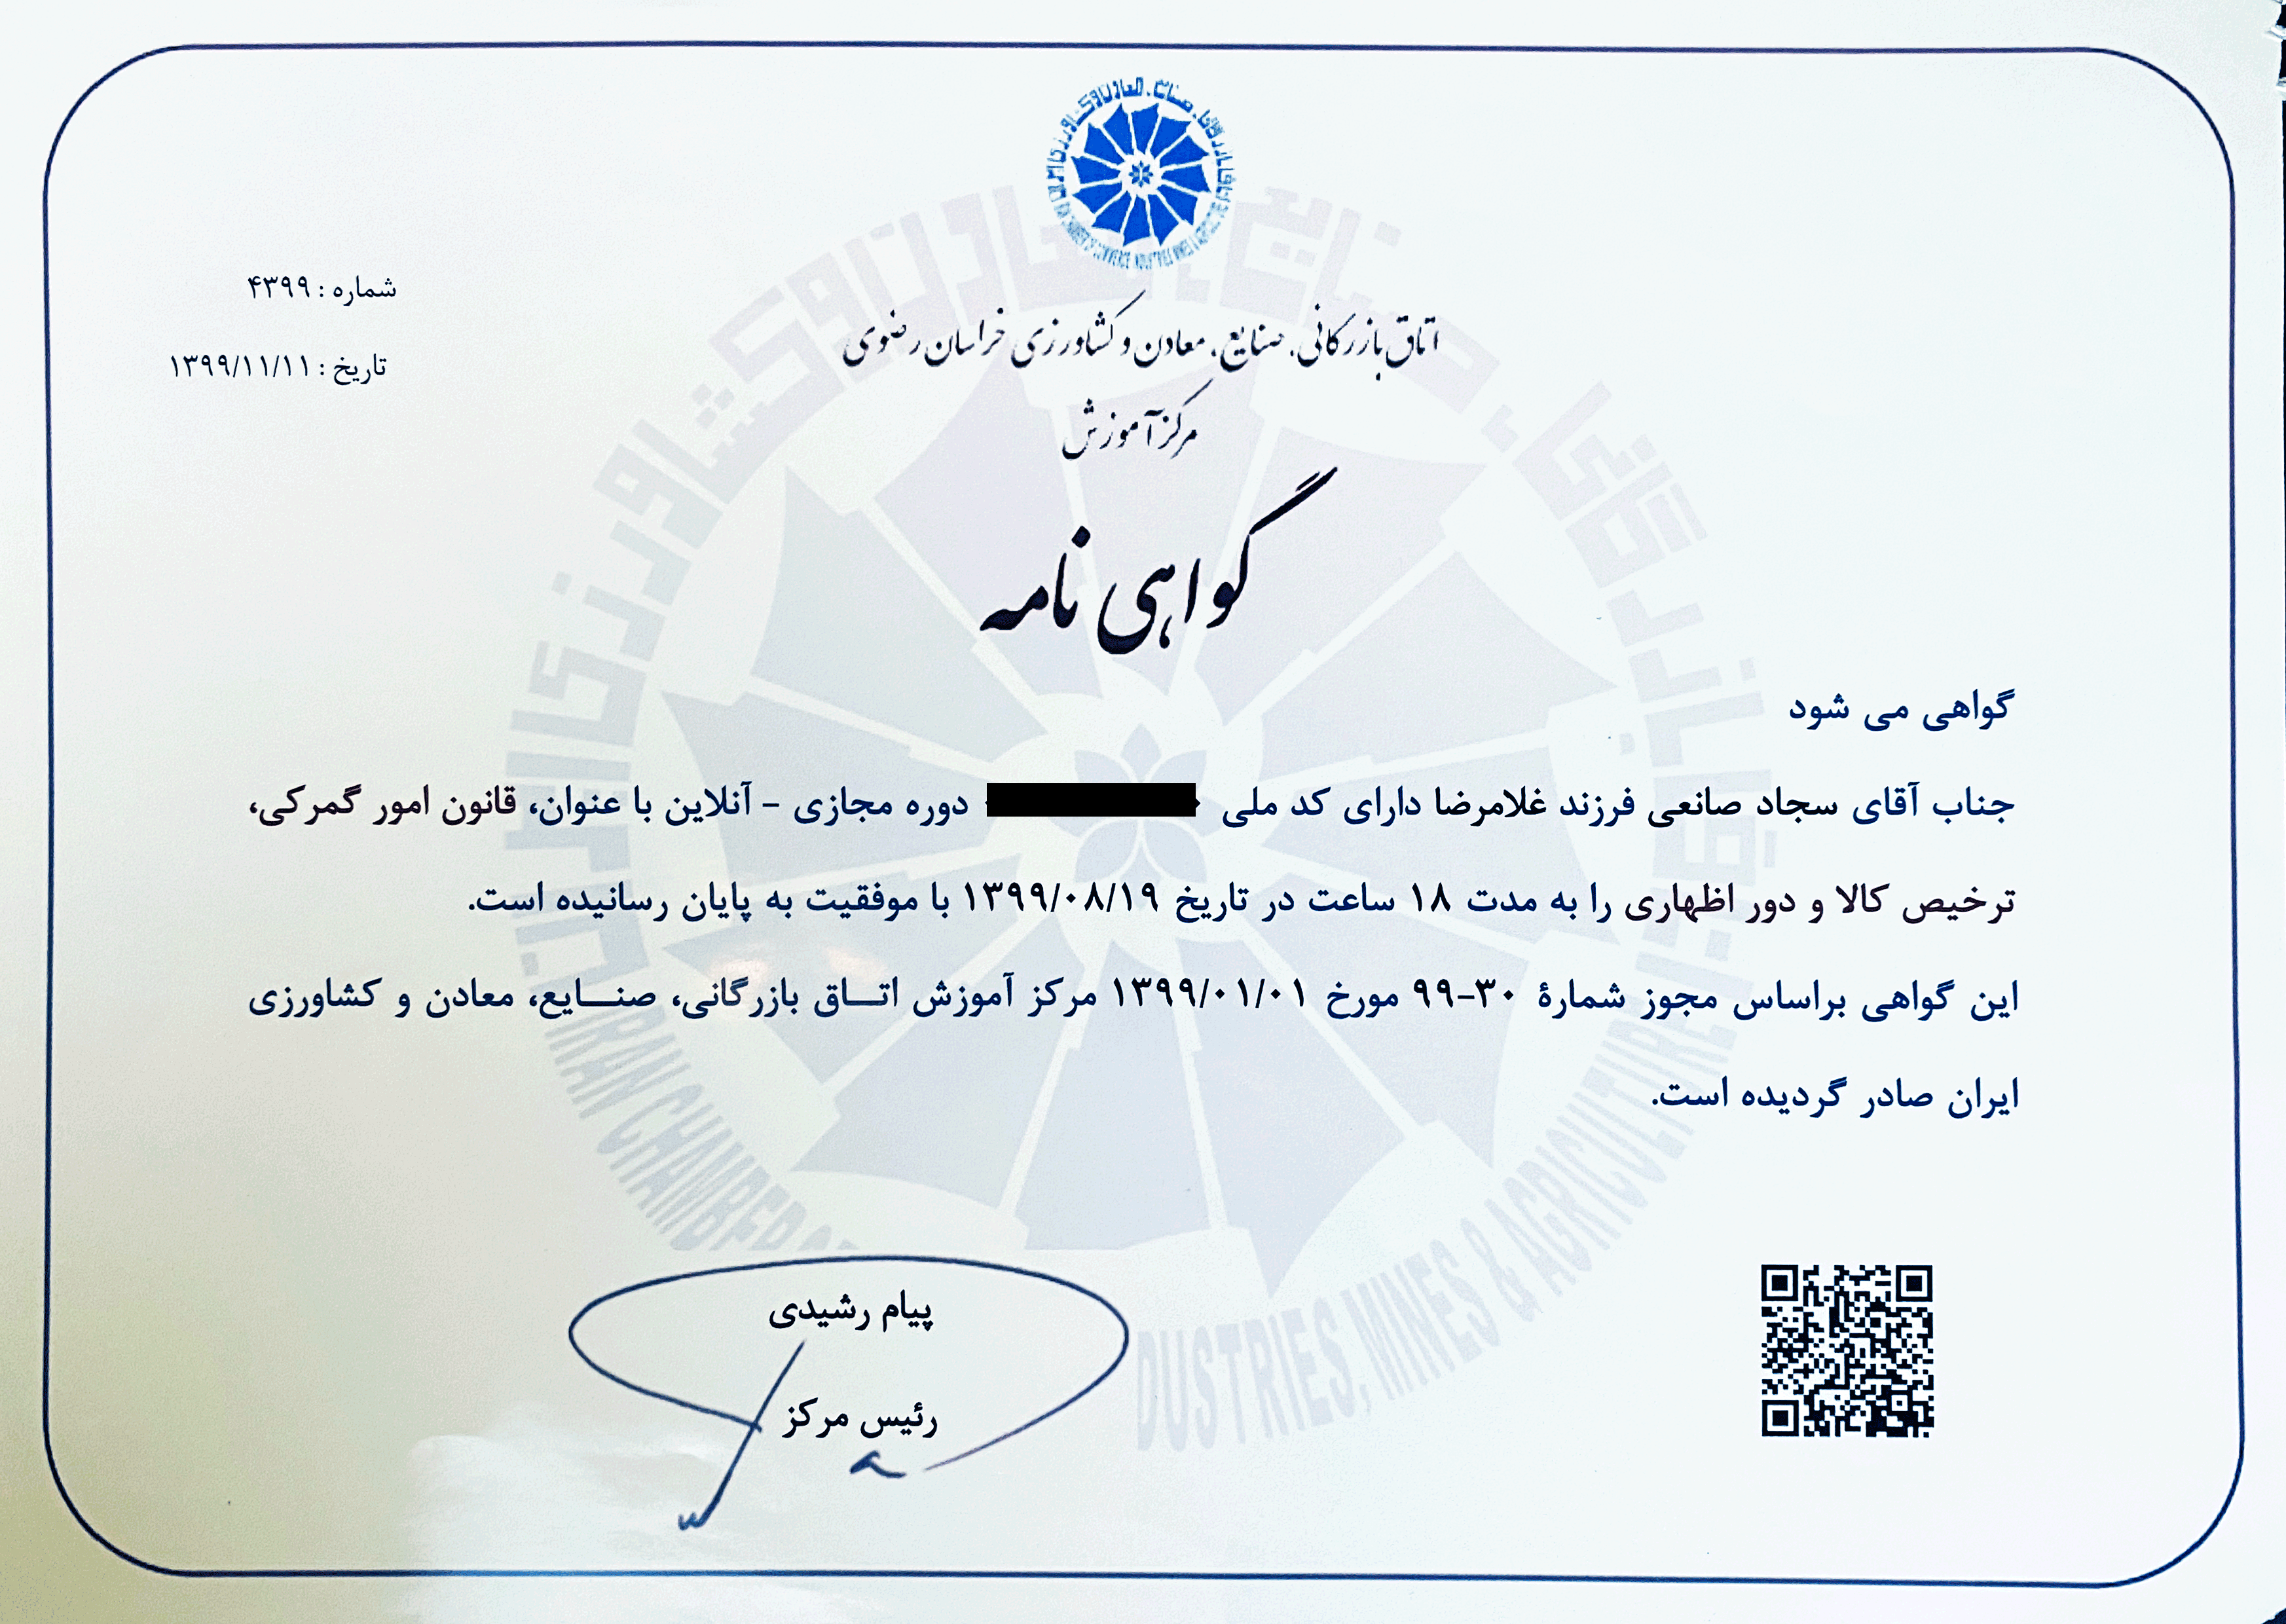 اتاق بازرگانی، صنایع، معادن و کشاورزی ایران
IRAN CHAMBER OF COMMERCE, INDUSTRIES, MINES & AGRICULTURE
شماره : ۴۳۹۹
تاریخ : ۱۳۹۹/۱۱/۱۱
اتاق بازرگانی، صنایع، معادن و کشاورزی خراسان رضوی
مرکز آموزش
گواهی نامه
گواهی می شود
جناب آقای سجاد صانعی فرزند غلامرضا دارای کد ملی دوره مجازی - آنلاین با عنوان، قانون امور گمرکی،
ترخیص کالا و دور اظهاری را به مدت ۱۸ ساعت در تاریخ ۱۳۹۹/۰۸/۱۹ با موفقیت به پایان رسانیده است.
این گواهی براساس مجوز شمارهٔ ۳۰-۹۹ مورخ ۱۳۹۹/۰۱/۰۱ مرکز آموزش اتاق بازرگانی، صنایع، معادن و کشاورزی
ایران صادر گردیده است.
پیام رشیدی
رئیس مرکز